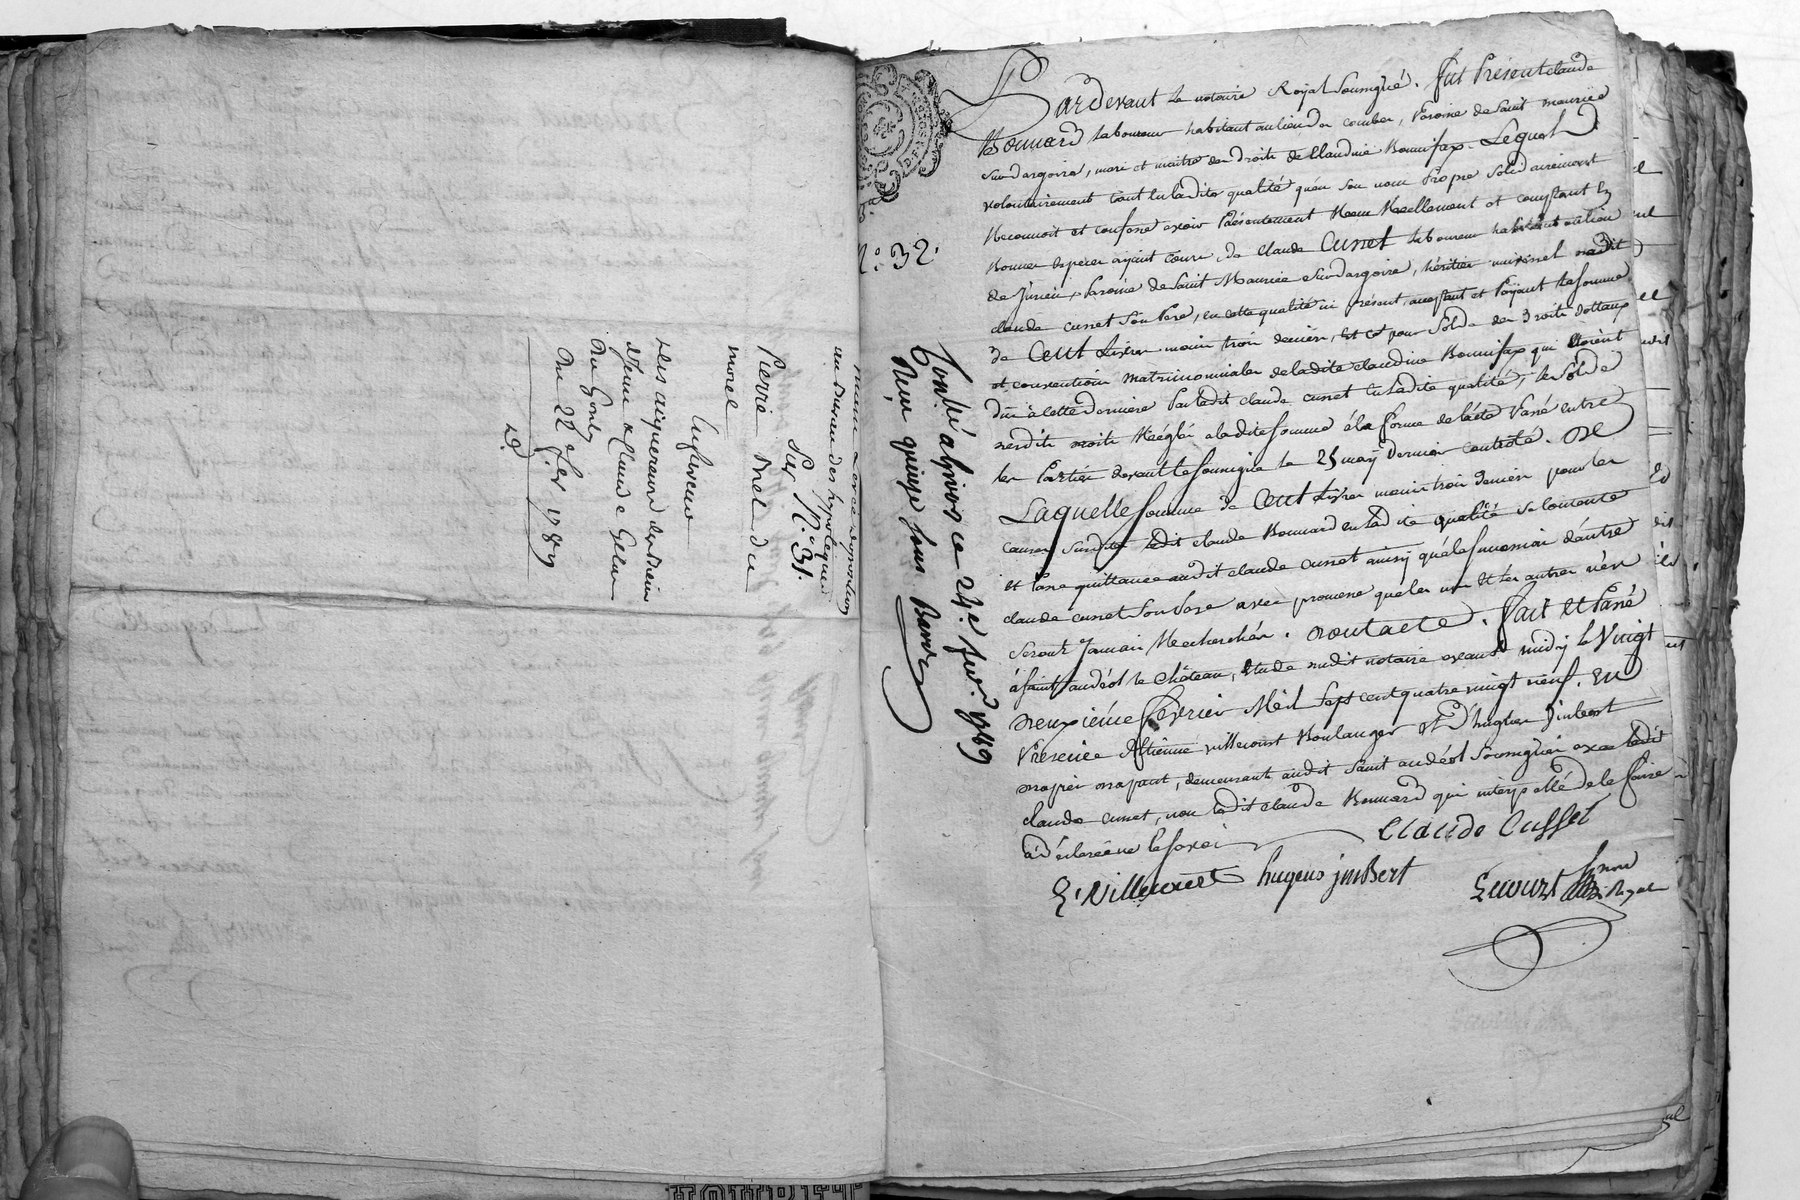 Sur N.° 31.
Pierre Brel du
morel
Les acquereurs des biens
du 22.e fev. 1789
N.° 32.
Controlé a givors ce 24.e fev. 1789
Reçu quinze sous
Pardevant Le notaire Royal Soussigné. fut Present claude
Bonnard laboureur habitant au lieu de combes, Paroisse de Saint maurice
sur dargoire, mari et maitre des Droits de Claudine Bonnifax. Lequel
volontairement tant en ladite qualité qu'en son nom Propre solidairement
Reconnoit et confesse avoir Présentement Reçu Réellement et comptant en
Bonnes especes ayant cours, de claude Cusset laboureur habitant au lieu
de Jurieux Paroisse de Saint Maurice sur dargoire, héritier universel dudit
claude cusset Son Pere, en cette qualité ici présent, acceptant et Payant la somme
de Cent Livres moins trois deniers, Et ce pour Solde des Droits dottaux
et conventions matrimoniales de ladite claudine Bonnifax qui étoient
dus à cette derniere Par ledit claude cusset en ladite qualité, le Solde
desdits droits Réglé a ladite somme à la forme de l'acte Passé entre
les Parties devant le soussigné le 25 may Dernier controlé. De
Laquelle somme de Cent Livres moins trois deniers pour les
causes susdites ledit claude Bonnard en ladite qualité se contente
Et Passe quittance audit claude cusset ainsy qu'à la succession dudit
claude cusset Son Pere avec promesse que les uns Et les autres n'en
seront Jamais Recherchés. Dont acte. fait Et Passé
à saint andéol le Château, Etude dudit notaire avant midy le Vingt
deuxième février Mil Sept cent quatre vingt neuf. En
Présence d'Etienne villecourt Boulanger Et d'hugues Jmbert
demeurants audit Saint andéol Soussignés avec ledit
claude cusset, non ledit claude Bonnard qui interpellé de le faire
a déclaré ne le savoir
Claude Cusset
E. Villecourt hugues jmbert